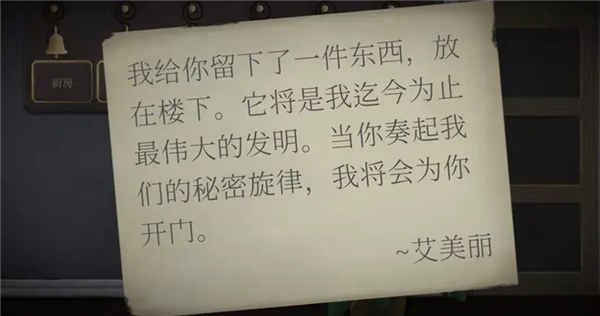 厨房
我给你留下了一件东西，放
在楼下。它将是我迄今为止
最伟大的发明。当你奏起我
们的秘密旋律，我将会为你
开门。
~艾美丽